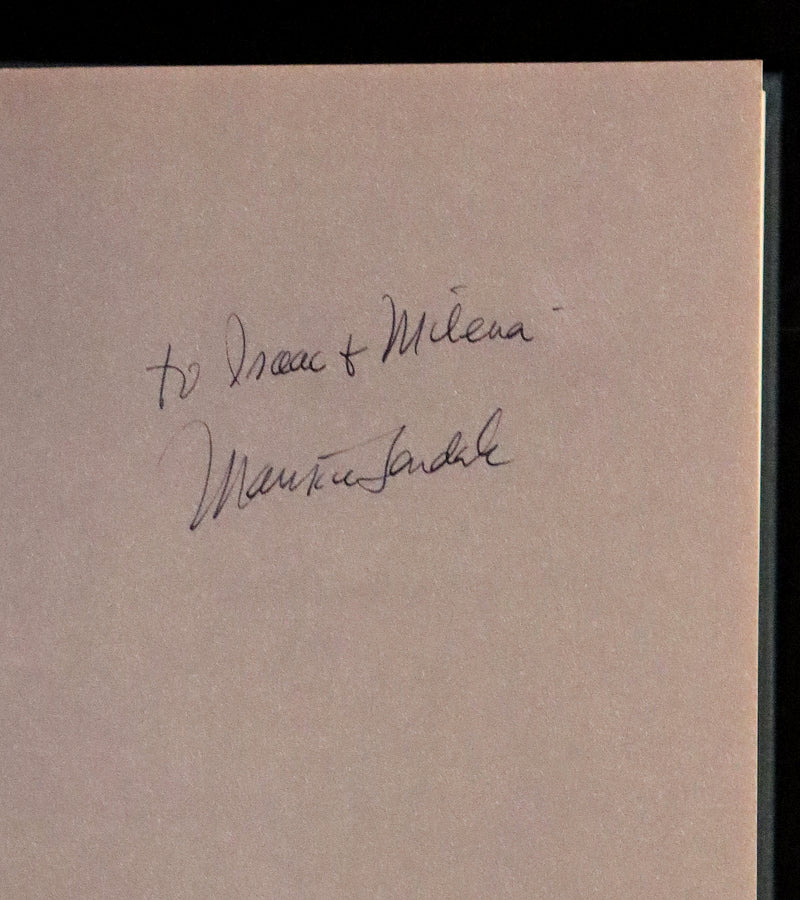 to Isaac + Milena -
Maurice Sendak